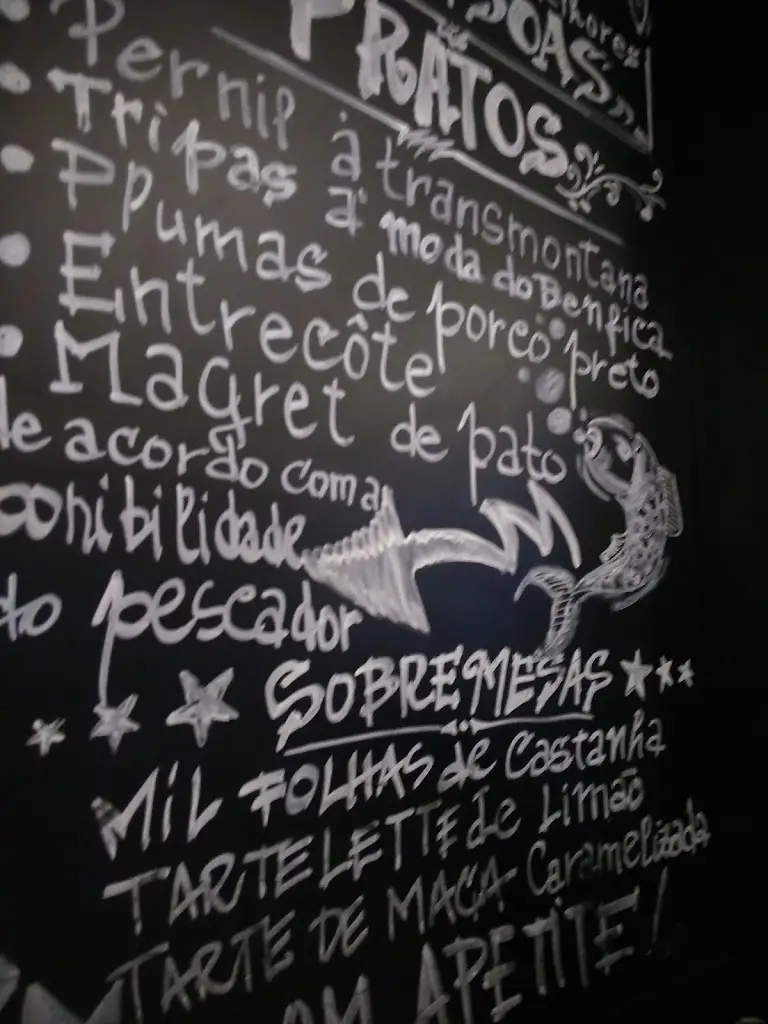 melhores
PRATOS
Pernil à transmontana
Tripas à moda do Benfica
Ppumas de porco preto
Entrecôte
Magret de pato
de acordo com a
do pescador
SOBREMESAS
MIL FOLHAS de Castanha
TARTELETTE de Limão
TARTE DE MAÇA Caramelizada
APETITE!